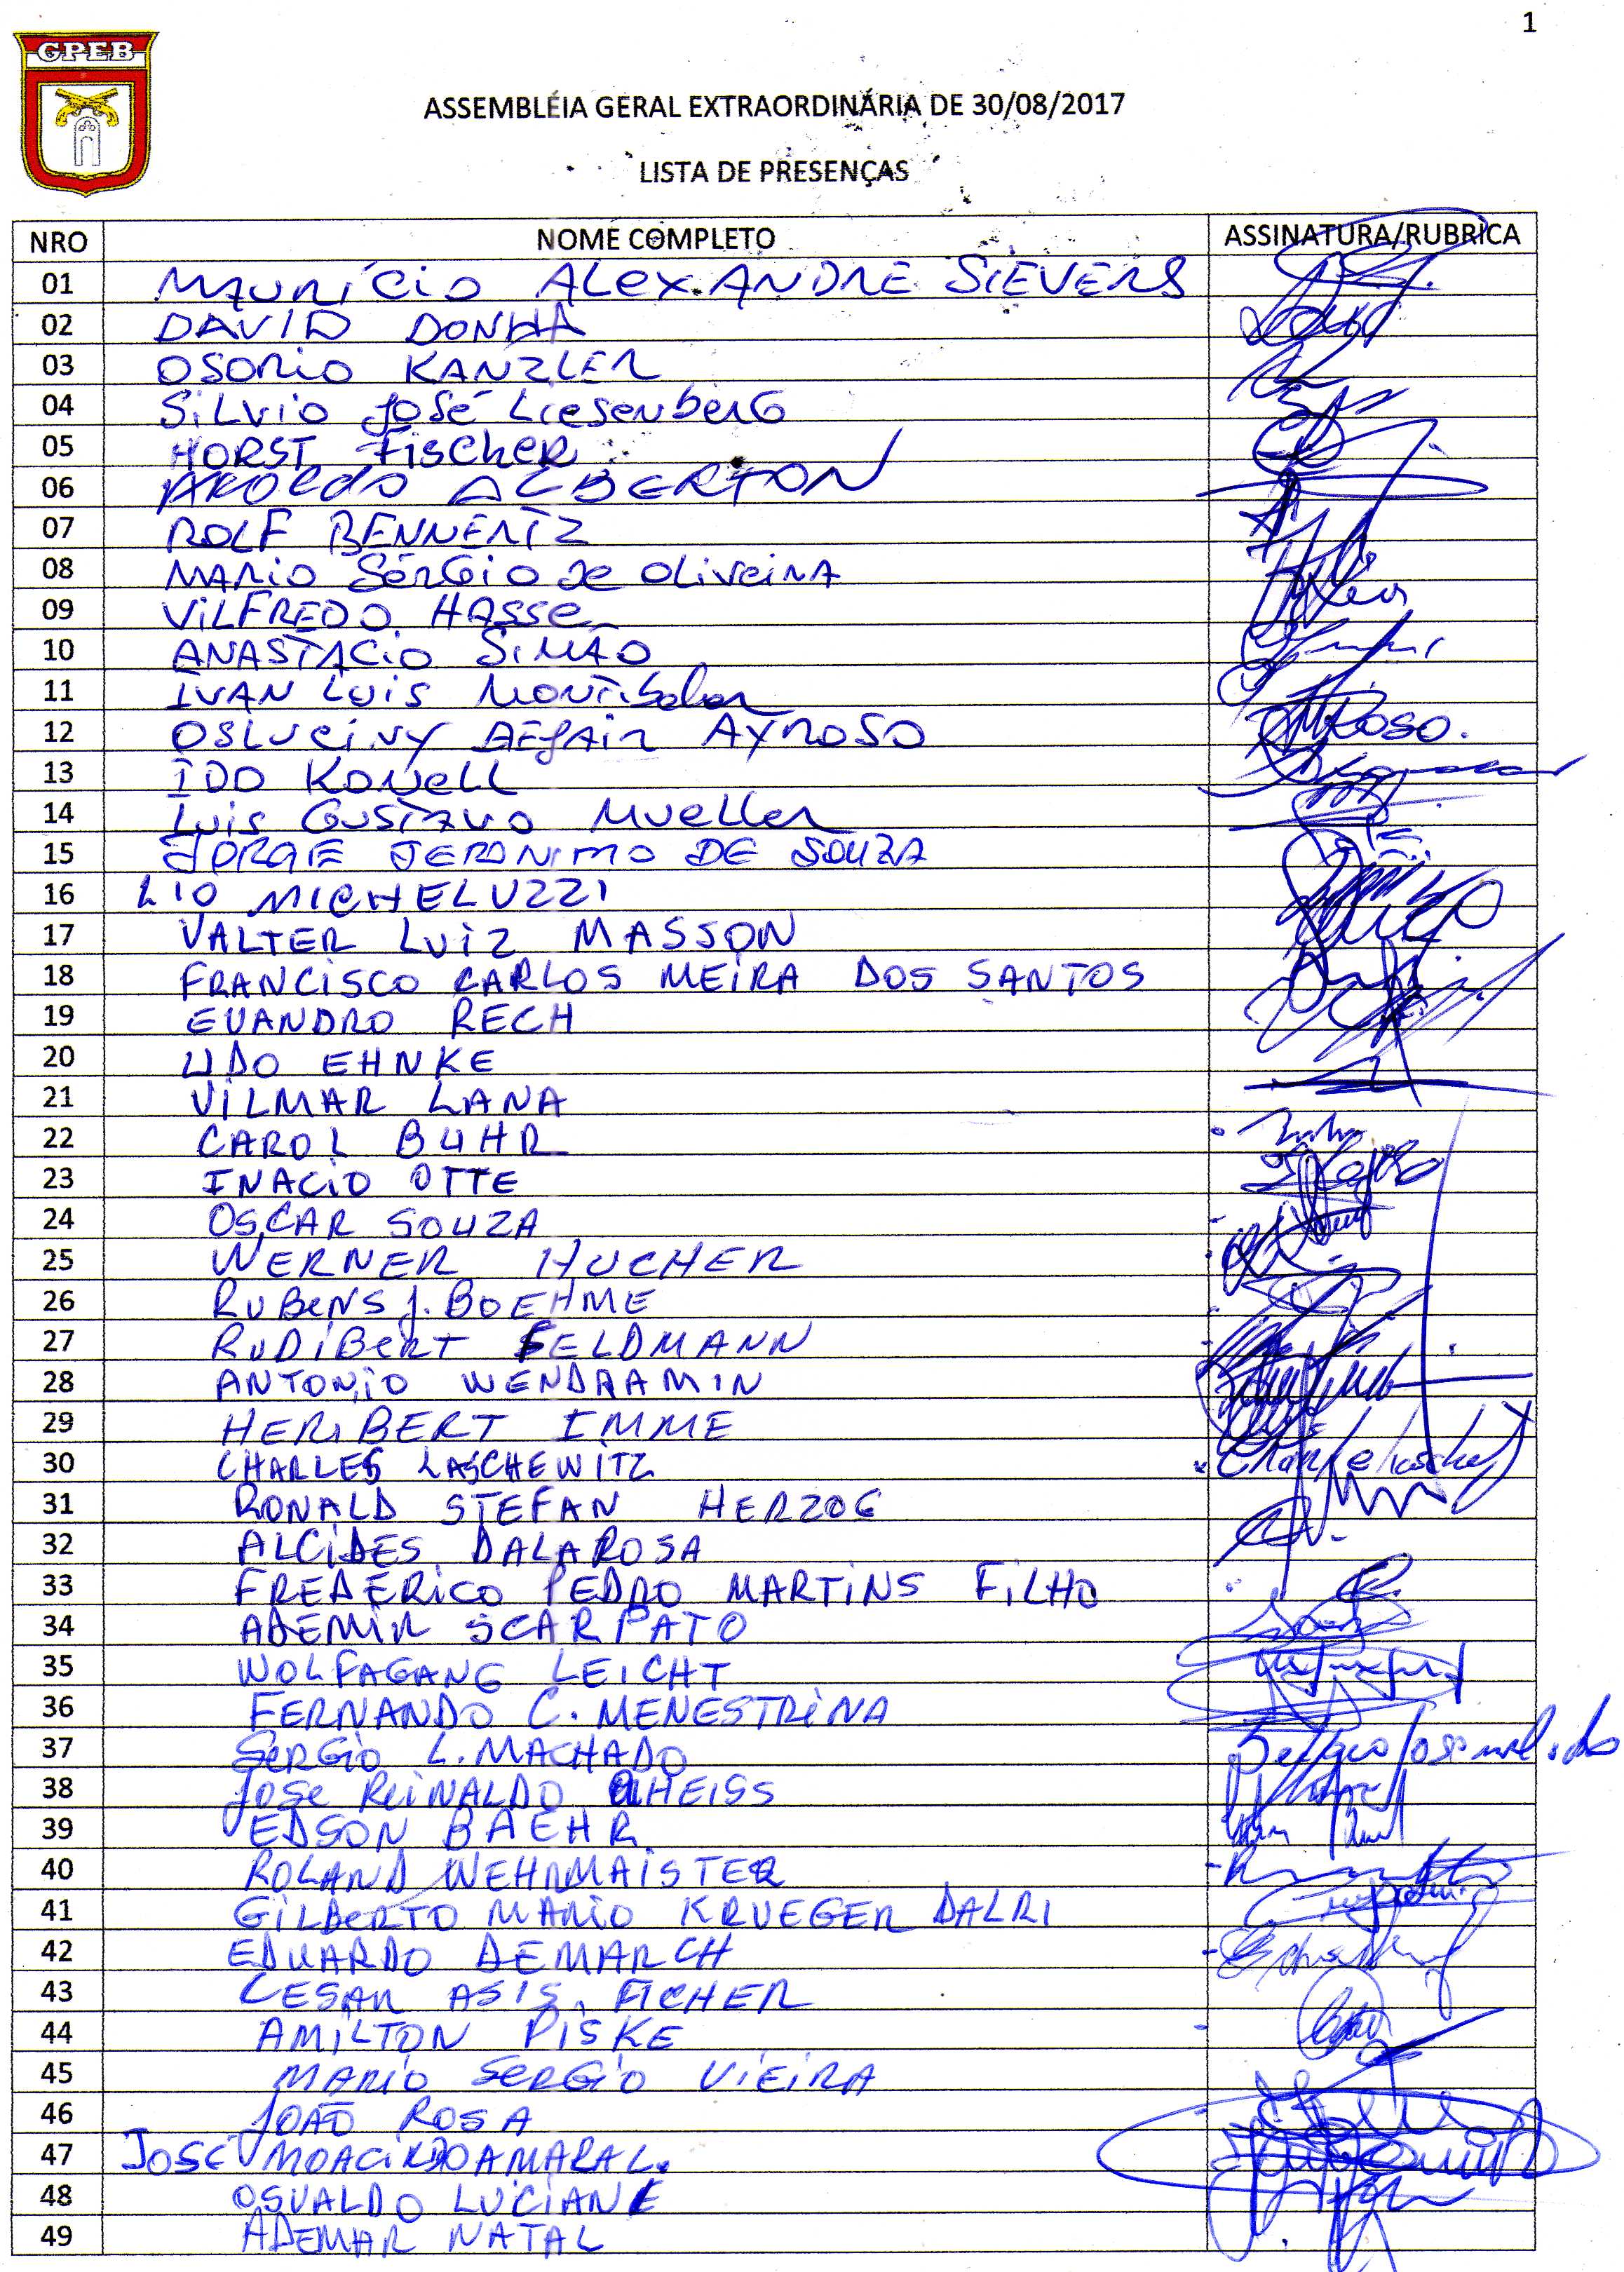 1
GPEB
ASSEMBLÉIA GERAL EXTRAORDINÁRIA DE 30/08/2017
LISTA DE PRESENÇAS
NRO NOME COMPLETO ASSINATURA/RUBRICA
01 MAURÍCIO ALEXANDRE SIEVERS
02 DAVID DONHA
03 OSORIO KANZLER
04 SILVIO JOSÉ LIESENBERG
05 HORST FISCHER
06 AROLDO ALBERTON
07 ROLF BENNERTZ
08 MARIO SÉRGIO DE OLIVEIRA
09 VILFREDO HASSE
10 ANASTÁCIO SIMÃO
11 IVAN LUIS MONTIBELER
12 OSLUCINY AYROSO AYROSO.
13 IDO KONELL
14 LUIS GUSTAVO MUELLER
15 JORGE JERONIMO DE SOUZA
16 LIO MICHELUZZI
17 VALTER LUIZ MASSON
18 FRANCISCO CARLOS MEIRA DOS SANTOS
19 EVANDRO RECH
20 UDO EHNKE
21 VILMAR LANA
22 CAROL BUHR
23 INACIO OTTE
24 OSCAR SOUZA
25 WERNER HUCHER
26 RUBENS J. BOEHME
27 RUDIBERT FELDMANN
28 ANTONIO WENDRAMIN
29 HERIBERT IMME
30 CHARLES LASCHEWITZ
31 RONALD STEFAN HERZOG
32 ALCIDES DALAROSA
33 FREDERICO PEDRO MARTINS FILHO
34 ADEMIR SCARPATO
35 WOLFAGANG LEICHT
36 FERNANDO C. MENESTRINA
37 SERGIO L. MACHADO
38 JOSE REINALDO
39 EDSON BAEHR
40 ROLAND WEHRMAISTER
41 GILBERTO MARIO KRUEGER DALRI
42 EDUARDO DEMARCH
43 CESAR ASIS FICHER
44 AMILTON PISKE
45 MARIO SERGIO VIEIRA
46 JOÃO ROSA
47 JOSÉ MOACIR DO AMARAL.
48 OSVALDO LUCIANE
49 ADEMAR NATAL